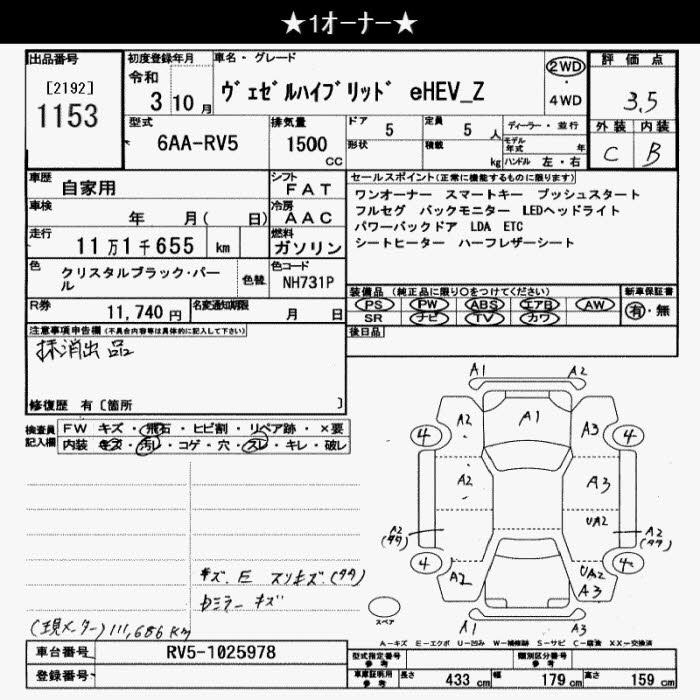 ★1ｵｰﾅｰ★
出品番号
[2192]
1153
初度登録年月
令和
3 10月
車名・グレード
ヴェゼルハイブリッド eHEV_Z
2WD
4WD
評価点
3.5
外装 内装
C B
型式
6AA-RV5
排気量
1500
cc
ドア
5
形状
定員
5 人
積載
kg
ディーラー・並行
モデル年式 年
ハンドル 左・右
車歴
自家用
車検
年 月( 日)
走行
11万1千655 km
シフト
FAT
冷房
AAC
燃料
ガソリン
色
クリスタルブラック・パール
色替
色コード
NH731P
R券
11,740円
名変通知期限
月 日
セールスポイント(正常に機能するものに限ります)
ワンオーナー スマートキー プッシュスタート
フルセグ バックモニター LEDヘッドライト
パワーバックドア LDA ETC
シートヒーター ハーフレザーシート
装備品 (純正品に限り○をつけてください)
PS PW ABS エアB AW
SR ナビ TV カワ
新車保証書
有・無
後日品
注意事項申告欄(不具合内容等は具体的に記入して下さい)
抹消出品
修復歴 有〔箇所 〕
検査員記入欄
FW キズ・飛石・ヒビ割・リペア跡・×要
内装 キズ・汚レ・コゲ・穴・スレ・キレ・破レ
A1 A2
A2 A1 A3
4 4
A2 A3
UA2
A2 A2
(タタ) (タタ)
4 4
A2 UA2
A3
A1 A3
スペア
キズ. E スリキズ.(タタ)
ミラー キズ
(現メーター) 111,686 Km
A-キズ E-エクボ U-凹み W-補修跡 S-サビ C-腐蝕 XX-交換済
車台番号
RV5-1025978
登録番号
型式指定番号
参考
類別区分番号
参考
車庫証明用
参考
長さ 433 cm
幅 179 cm
高さ 159 cm